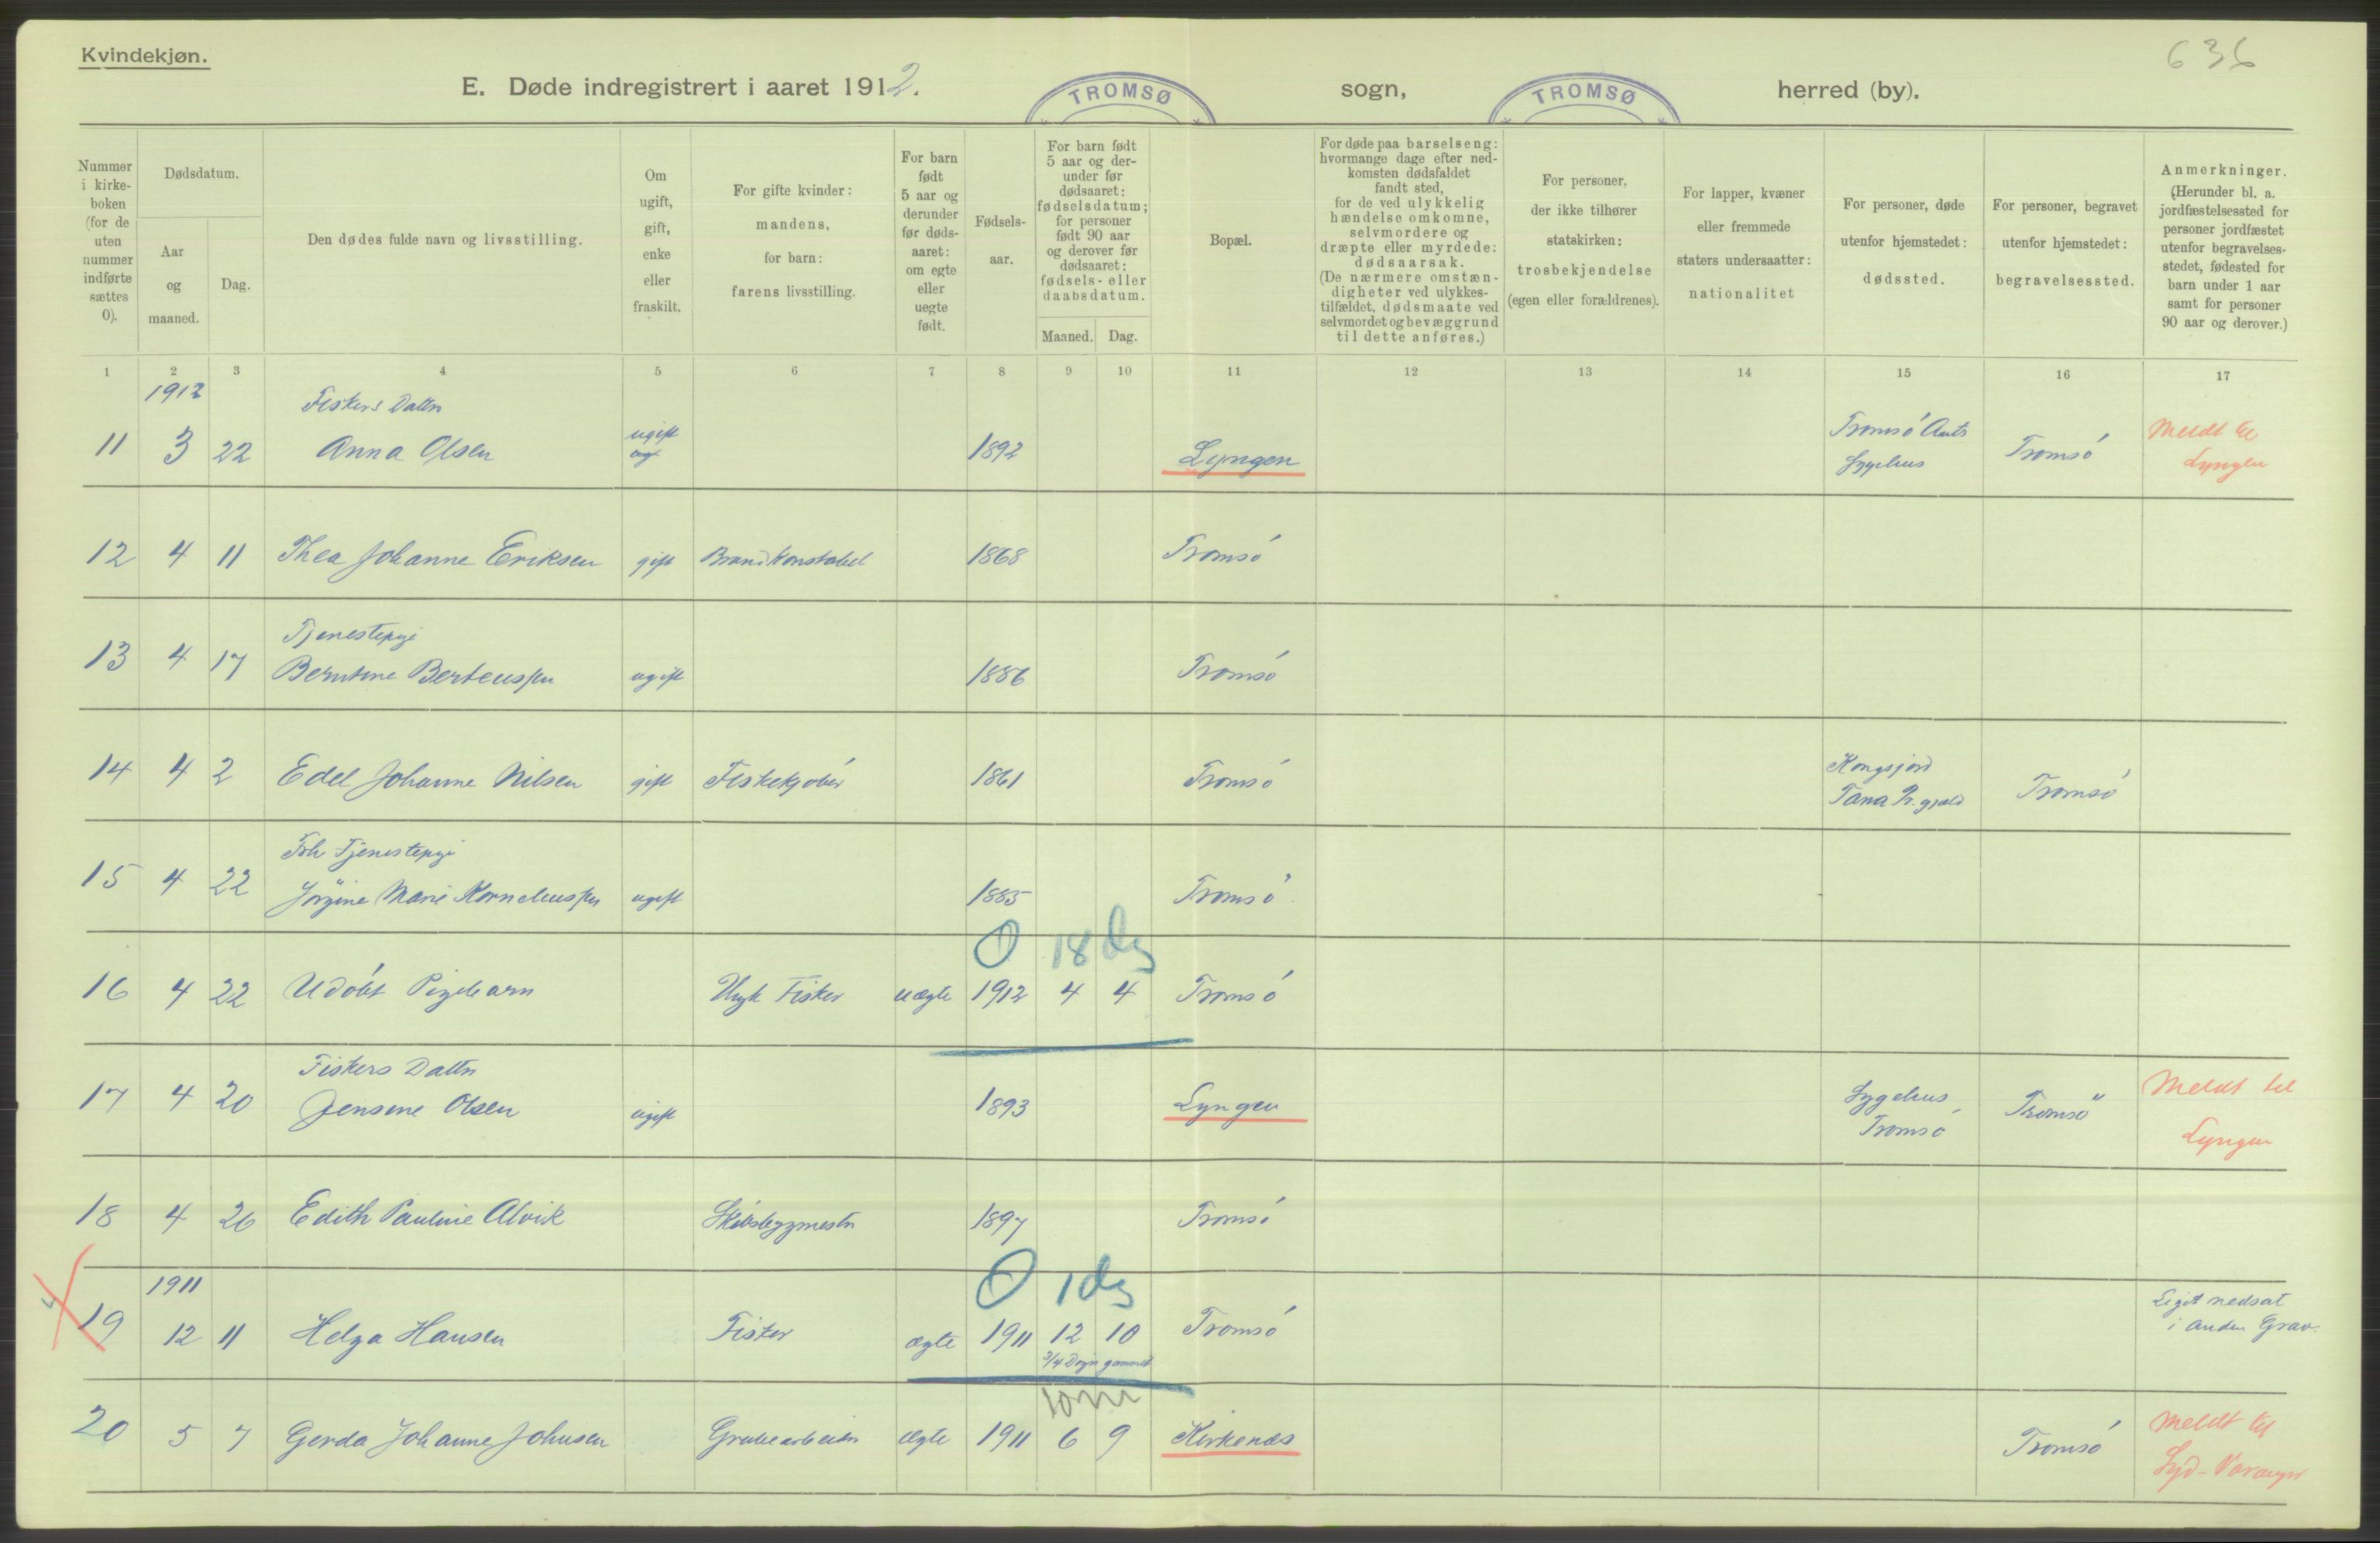 Kvindekjøn.
636
E. Døde indregistrert i aaret 1912. TROMSØ sogn, TROMSØ herred (by).
Nummer i kirke- boken (for de uten nummer indførte sættes 0).
Dødsdatum.
Aar og maaned.
Dag.
Den dødes fulde navn og livsstilling.
Om ugift, gift, enke eller fraskilt.
For gifte kvinder: mandens, for barn: farens livsstilling.
For barn født 5 aar og derunder før døds- aaret: om egte eller uegte født.
Fødsels- aar.
For barn født 5 aar og der- under før dødsaaret: fødselsdatum; for personer født 90 aar og derover før dødsaaret: fødsels- eller daabsdatum.
Maaned. Dag.
Bopæl.
For døde paa barselseng: hvormange dage efter ned- komsten dødsfaldet fandt sted, for de ved ulykkelig hændelse omkomne, selvmordere og dræpte eller myrdede: dødsaarsak. (De nærmere omstæn- digheter ved ulykkes- tilfældet, dødsmaate ved selvmordet og bevæggrund til dette anføres.)
For personer, der ikke tilhører statskirken: trosbekjendelse (egen eller forældrenes).
For lapper, kvæner eller fremmede staters undersaatter: nationalitet
For personer, døde utenfor hjemstedet: dødssted.
For personer, begravet utenfor hjemstedet: begravelsessted.
Anmerkninger. (Herunder bl. a. jordfæstelsessted for personer jordfæstet utenfor begravelses- stedet, fødested for barn under 1 aar samt for personer 90 aar og derover.)
1 2 3 4 5 6 7 8 9 10 11 12 13 14 15 16 17
1912 Fiskers Datter
11 3 22 Anna Olsen ugift 1892 Lyngen Tromsø Amts Sygehus Tromsø Meldt til Lyngen
12 4 11 Thea Johanne Eriksen gift Brandkonstabel 1868 Tromsø
Tjenestepige
13 4 17 Berntine Berteussen ugift 1886 Tromsø
14 4 2 Edel Johanne Nilsen gift Fiskekjøber 1861 Tromsø Kongsfjord Tana Pr.gjæld Tromsø
Fhv Tjenestepige
15 4 22 Jörgine Marie Korneliussen ugift 1885 Tromsø
0 18 dg
16 4 22 Udøbt Pigebarn Ungk Fisker uægte 1912 4 4 Tromsø
Fiskers Datter
17 4 20 Jensine Olsen ugift 1893 Lyngen Sygehus Tromsø Tromsö Meldt til Lyngen
18 4 26 Edith Pauline Alvik Skibsbygmester 1897 Tromsø
1911 0 1 dg
19 12 11 Helga Hansen Fisker ægte 1911 12 10 Tromsø Liget nedsat i anden Grav.
3/4 Døgn gammel
10 m
20 5 7 Gerda Johanne Johnsen Grubearbeider ægte 1911 6 9 Kirkenæs Tromsø Meldt til Syd-Varanger